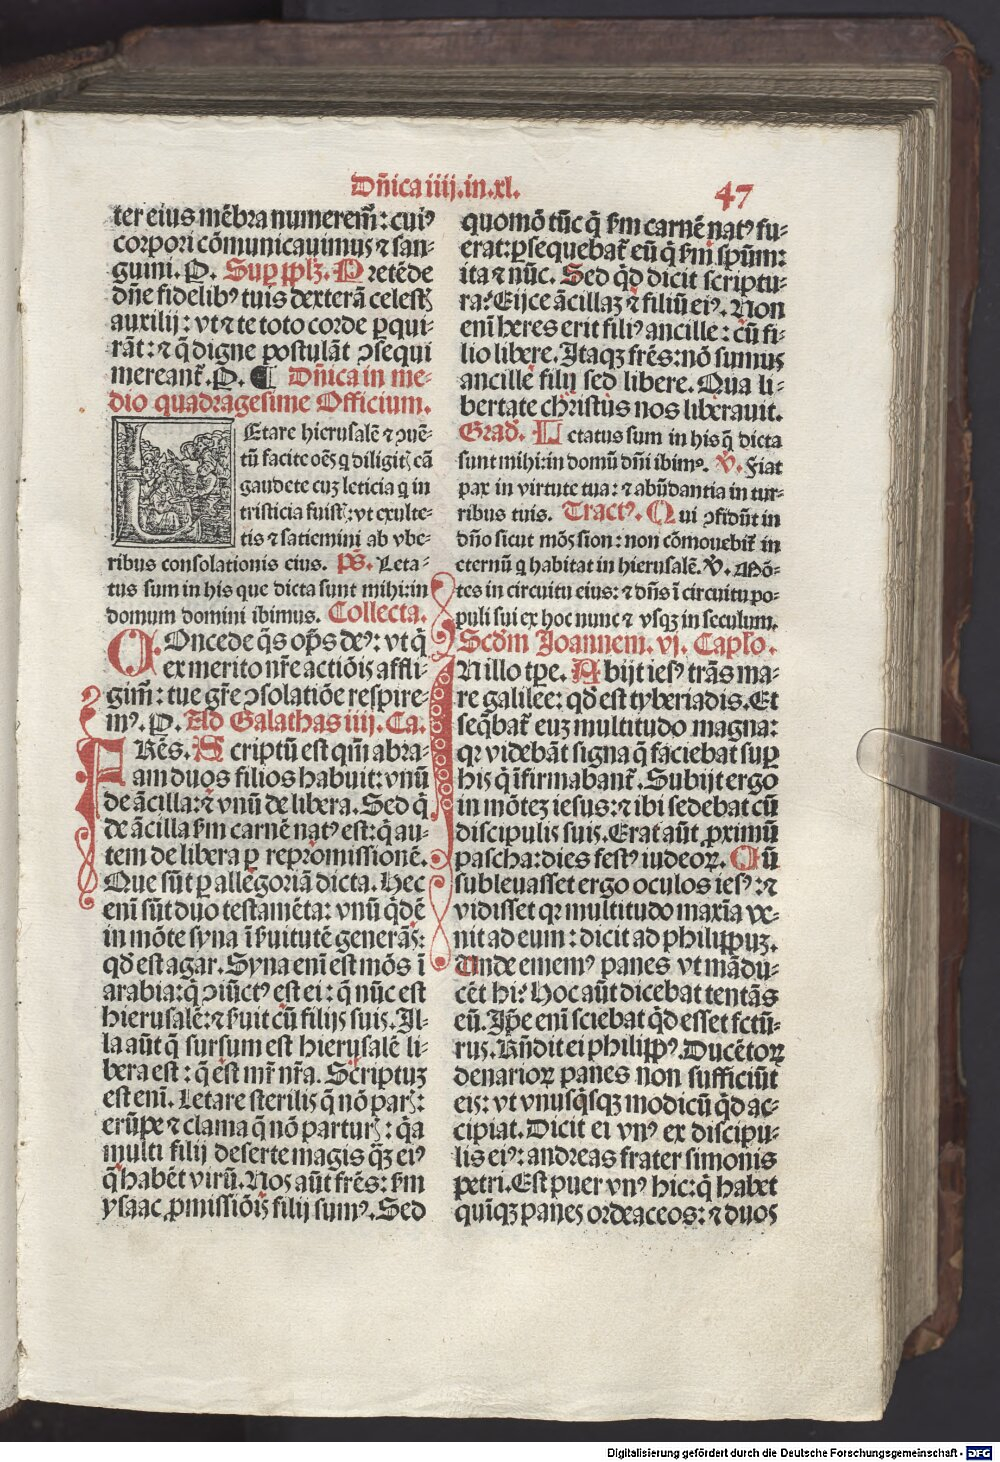 Dñica iiij. in. xl.
47
ter eius mẽbra numeremr̃: cuiꝰ
corpori cõmunicauimus ⁊ san-
guini. P. Sup pplꝫ. Pretẽde
dñe fidelibꝰ tuis dexterã celestꝭ
auxilij: vt ⁊ te toto corde ꝑqui-
rãt: ⁊ q̃ digne postulãt ↄsequi
mereantr̃. P. ¶ Dñica in me-
dio quadragesime Officium.
LEtare hierusalẽ ⁊ ↄuẽ-
tũ facite oẽs q diligitꝭ eã
gaudete cuꝫ leticia q in
tristicia fuistꝭ: vt exulte-
tis ⁊ satiemini ab vbe-
ribus consolationis eius. Ps̃. Leta-
tus sum in his que dicta sunt mihi: in
domum domini ibimus. Collecta.
COncede q̃s op̃s deꝰ: vt q̃
ex merito nr̃e actiõis affli-
gimr̃: tue gr̃e ↄsolatiõe respire-
mꝰ. P. Ad Galathas iiij. Ca.
FRẽs. Scriptũ est qm̃ abra-
am duos filios habuit: vnũ
de ãcilla: ⁊ vnũ de libera. Sed q̃
de ãcilla ẜm carnẽ natꝰ est: q̃ au-
tem de libera ꝑ repromissionẽ.
Que sũt ꝑ allegoriã dicta. Hec
enĩ sũt duo testamẽta: vnũ q̃dẽ
in mõte syna ĩ ẜuitutẽ generãs:
qd̃ est agar. Syna enĩ est mõs ĩ
arabia: q̃ ↄiũctꝰ est ei: q̃ nũc est
hierusalẽ: ⁊ ẜuit cũ filijs suis. Il-
la aũt q̃ sursum est hierusalẽ li-
bera est: q̃ est mr̃ nr̃a. Scriptuꝫ
est enĩ. Letare sterilis q̃ nõ parꝭ:
erũpe ⁊ clama q̃ nõ parturꝭ: q̃a
multi filij deserte magis q̃ꝫ eiꝰ
q̃ habẽt virũ. Nos aũt frẽs: ẜm
ysaac ꝓmissiõis filij sumꝰ. Sed
quomõ tũc q̃ ẜm carnẽ natꝰ fu-
erat: ꝑsequebatr̃ eũ q̃ ẜm spũm:
ita ⁊ nũc. Sed qd̃ dicit scriptu-
ra? Eijce ãcillaꝫ ⁊ filiũ eiꝰ. Non
enĩ heres erit filiꝰ ancille: cũ fi-
lio libere. Itaqꝫ frẽs: nõ sumus
ancille filij sed libere. Qua li-
bertate christus nos liberauit.
Grad̃. Letatus sum in his q̃ dicta
sunt mihi: in domũ dñi ibimꝰ. ℣. Fiat
pax in virtute tua: ⁊ abũdantia in tur-
ribus tuis. Tractꝰ. Qui ↄfidũt in
dño sicut mõs sion: non cõmouebitr̃ in
eternũ q habitat in hierusalẽ. ℣. Mõ-
tes in circuitu eius: ⁊ dñs ĩ circuitu po-
puli sui ex hoc nunc ⁊ vsqꝫ in seculum.
Scd̃m Joannem. vj. Caplo.
IN illo tp̃e. Abijt iesꝰ trãs ma-
re galilee: qd̃ est tyberiadis. Et
seq̃batr̃ euꝫ multitudo magna:
qꝛ videbãt signa q̃ faciebat suꝑ
his q̃ ĩfirmabantr̃. Subijt ergo
in mõteꝫ iesus: ⁊ ibi sedebat cũ
discipulis suis. Erat aũt ꝓximũ
pascha: dies festꝰ iudeoꝝ. Cũ
subleuasset ergo oculos iesꝰ: ⁊
vidisset qꝛ multitudo maxĩa ve-
nit ad eum: dicit ad philippuꝫ.
Unde ememꝰ panes vt mãdu-
cẽt hi? Hoc aũt dicebat tentãs
eũ. Ip̃e enĩ sciebat q̃d esset fctũ-
rus. Rñdit ei philippꝰ. Ducẽtoꝝ
denarioꝝ panes non sufficiũt
eis: vt vnusq̃sqꝫ modicũ q̃d ac-
cipiat. Dicit ei vnꝰ ex discipu-
lis eiꝰ: andreas frater simonis
petri. Est puer vnꝰ hic: q̃ habet
quĩqꝫ panes ordeaceos: ⁊ duos
Digitalisierung gefördert durch die Deutsche Forschungsgemeinschaft - DFG